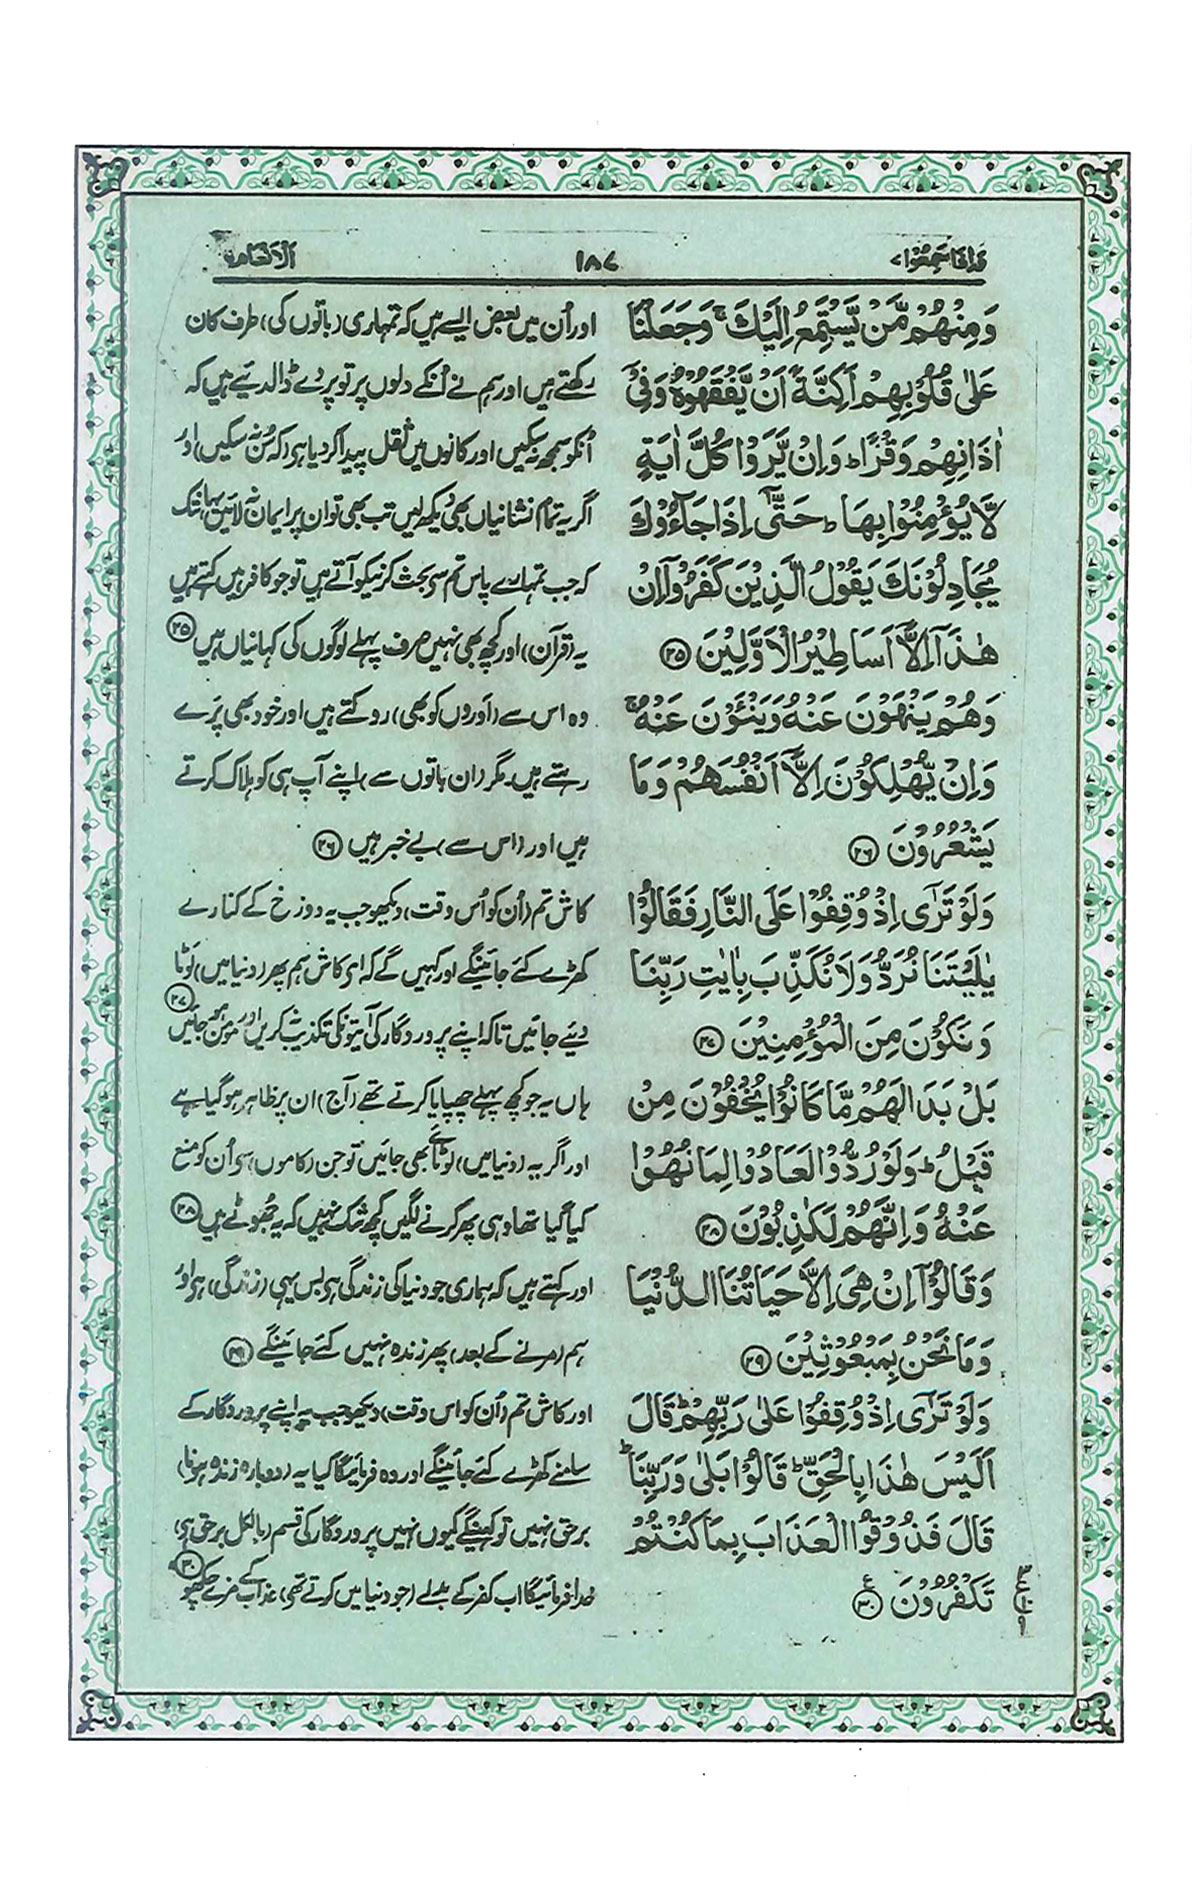 وَاِذَا سَمِعُوْا ٧
١٨٧
الانعام ٦
وَمِنْهُمْ مَّنْ يَّسْتَمِعُ اِلَيْكَ ۚ وَجَعَلْنَا
عَلٰى قُلُوْبِهِمْ اَكِنَّةً اَنْ يَّفْقَهُوْهُ وَفِيْٓ
اٰذَانِهِمْ وَقْرًا ؕ وَاِنْ يَّرَوْا كُلَّ اٰيَةٍ
لَّا يُؤْمِنُوْا بِهَا ؕ حَتّٰٓى اِذَا جَآءُوْكَ
يُجَادِلُوْنَكَ يَقُوْلُ الَّذِيْنَ كَفَرُوْٓا اِنْ
هٰذَآ اِلَّآ اَسَاطِيْرُ الْاَوَّلِيْنَ ۲۵
وَهُمْ يَنْهَوْنَ عَنْهُ وَيَنْـَٔوْنَ عَنْهُ ۚ
وَاِنْ يُّهْلِكُوْنَ اِلَّآ اَنْفُسَهُمْ وَمَا
يَشْعُرُوْنَ ۲۶
وَلَوْ تَرٰٓى اِذْ وُقِفُوْا عَلَى النَّارِ فَقَالُوْا
يٰلَيْتَنَا نُرَدُّ وَلَا نُكَذِّبَ بِاٰيٰتِ رَبِّنَا
وَنَكُوْنَ مِنَ الْمُؤْمِنِيْنَ ۲۷
بَلْ بَدَا لَهُمْ مَّا كَانُوْا يُخْفُوْنَ مِنْ
قَبْلُ ؕ وَلَوْ رُدُّوْا لَعَادُوْا لِمَا نُهُوْا
عَنْهُ وَاِنَّهُمْ لَكٰذِبُوْنَ ۲۸
وَقَالُوْٓا اِنْ هِىَ اِلَّا حَيَاتُنَا الدُّنْيَا
وَمَا نَحْنُ بِمَبْعُوْثِيْنَ ۲۹
وَلَوْ تَرٰٓى اِذْ وُقِفُوْا عَلٰى رَبِّهِمْ ؕ قَالَ
اَلَيْسَ هٰذَا بِالْحَقِّ ؕ قَالُوْا بَلٰى وَرَبِّنَا ؕ
قَالَ فَذُوْقُوا الْعَذَابَ بِمَا كُنْتُمْ
تَكْفُرُوْنَ ۳۰
اور اُن میں بعض ایسے ہیں کہ تمہاری (باتوں کی) طرف کان
رکھتے ہیں اور ہم نے اُنکے دلوں پر تو پردے ڈالدئیے ہیں کہ
اُنکو سمجھ نہ سکیں اور کانوں میں ثقل پیدا کردیا ہی (کہ سُن نہ سکیں) اور
اگر یہ تمام نشانیاں بھی دیکھ لیں تب بھی تو ان پر ایمان نہ لائیں یہانتک
کہ جب تمہارے پاس تم سی بحث کرنیکو آتے ہیں تو جو کافر ہیں کہتے ہیں
یہ (قرآن) اور کچھ بھی نہیں صرف پہلے لوگوں کی کہانیاں ہیں ۲۵
وہ اس سے (اَوروں کو بھی) روکتے ہیں اور خود بھی پَرے
رہتے ہیں۔ مگر (ان باتوں سے) اپنے آپ ہی کو ہلاک کرتے
ہیں اور (اس سے) بے خبر ہیں ۲۶
کاش تم (اُن کو اُس وقت) دیکھو جب یہ دوزخ کے کنارے
کھڑے کئے جائینگے اور کہیں گے کہ ای کاش ہم پھر (دنیا میں) لَوٹا
دیئے جائیں تاکہ اپنے پروردگار کی آیتونکی تکذیب نہ کریں اور مومن ہو جائیں ۲۷
ہاں یہ جو کچھ پہلے چھپایا کرتے تھے (آج) ان پر ظاہر ہوگیا ہے
اور اگر یہ (دنیا میں) لوٹائے بھی جائیں تو جن (کاموں) سی اُن کو منع
کیا گیا تھا وہی پھر کرنے لگیں کچھ شک نہیں کہ یہ جھوٹے ہیں ۲۸
اور کہتے ہیں کہ ہماری جو دنیا کی زندگی ہی بس یہی (زندگی) ہی اور
ہم (مرنے کے بعد) پھر زندہ نہیں کئے جائینگے ۲۹
اور کاش تم (اُن کو اس وقت) دیکھو جب یہ اپنے پروردگار کے
سامنے کھڑے کئے جائینگے اور وہ فرمائیگا کیا یہ (دوبارہ زندہ ہونا)
برحق نہیں تو کہینگے کیوں نہیں پروردگار کی قسم (بالکل برحق ہی)
خدا فرمائیگا اب کفر کے بدلے (جو دنیا میں کرتے تھی) عذاب کے مزے چکھو ۳۰